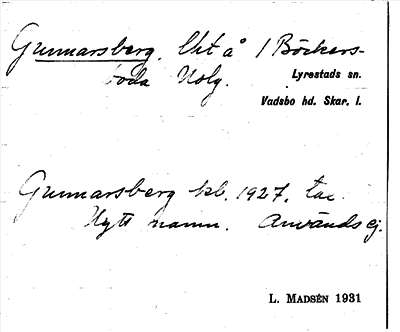 Gunnarsberg. Uht å 1 Böckers-
boda Nolg.
Lyrestads sn.
Vadsbo hd. Skar. l.
Gunnarsberg kb. 1927,
Nytt namn. Används ej.
L. MADSÉN 1931